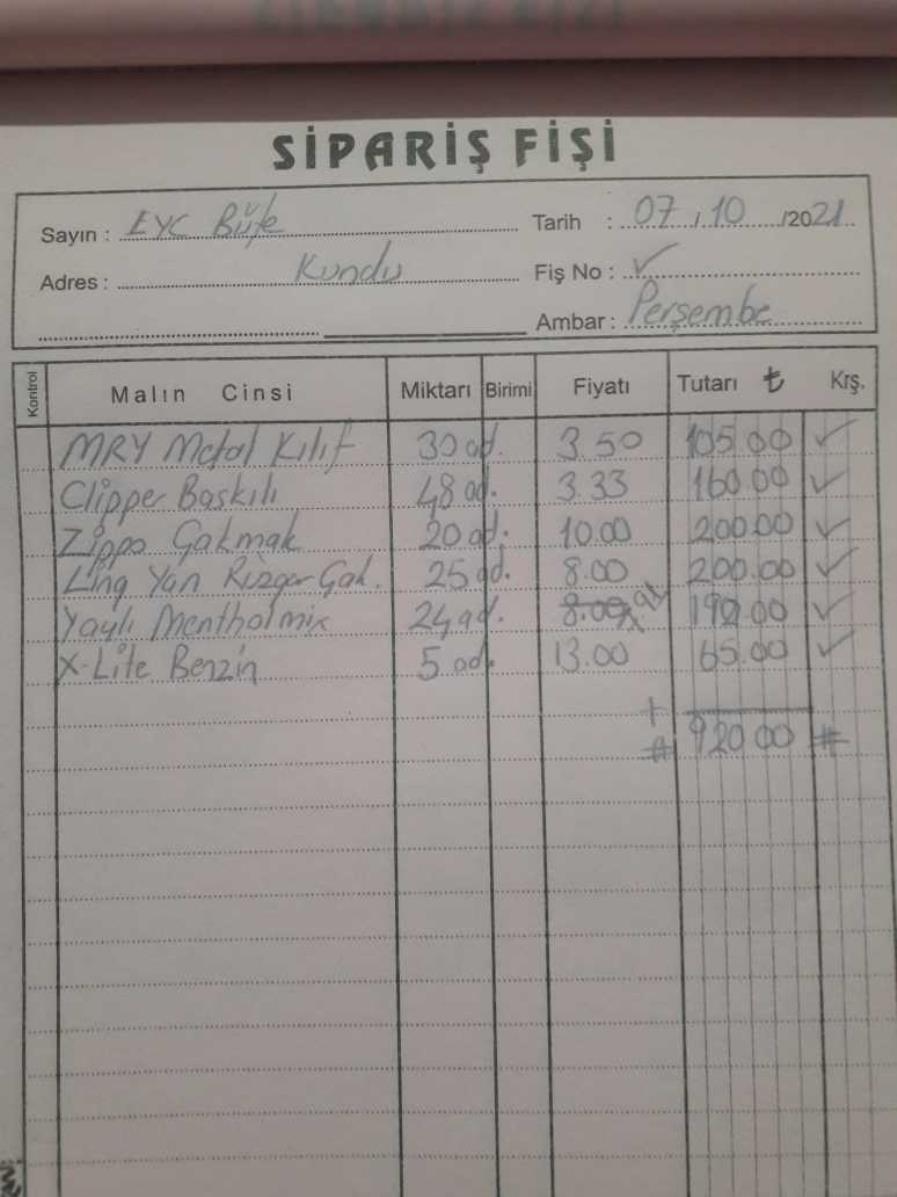 SİPARİŞ FİŞİ
Sayın : EYC Büfe
Tarih : 07 / 10 /2021
Adres : Kundu
Fiş No : ✓
Ambar : Perşembe
Kontrol Malın Cinsi Miktarı Birimi Fiyatı Tutarı ₺ Krş.
MRY Metal Kılıf 30 ad. 3.50 105.00 ✓
Clipper Baskılı 48 ad. 3.33 160.00 ✓
Zippo Çakmak 20 ad. 10.00 200.00 ✓
Ling Yan Rüzgar Çak. 25 ad. 8.00 200.00 ✓
Yaylı Mentholmix 24 ad. 8.00 190.00 ✓
X-Lite Benzin 5 ad. 13.00 65.00 ✓
+
# 920.00 #